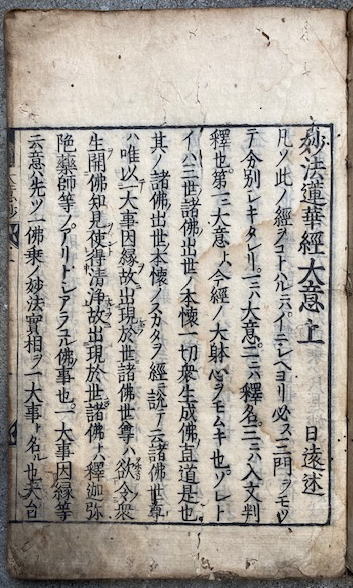 妙法蓮華經大意上
日遠述
凡ソ此ノ經ヲトハ云イニシヘヨリ必ス三門ヲモツ
テ分別シキタレリ一ハ大意二ハ釋名三ハ入文判
釋也第一ニ大意ト今經ノ大躰心ヲモムキ也ソレト
イハ三世諸佛出世ノ本懷一切衆生成佛ノ直道是也
其ノ諸佛出世本懷ノスカタヲ經ニ説テ云諸佛世尊
ハ唯以一大事因縁故出現於世諸佛世尊ハ欲令衆
生開佛知見使得清淨故出現於世諸佛トハ釋迦弥
陀藥師等ノアリトシアラユル佛事也一大事因縁等
云意ハ先ツ一佛乗ノ妙法實相ヲ一大事ト名ル也天台